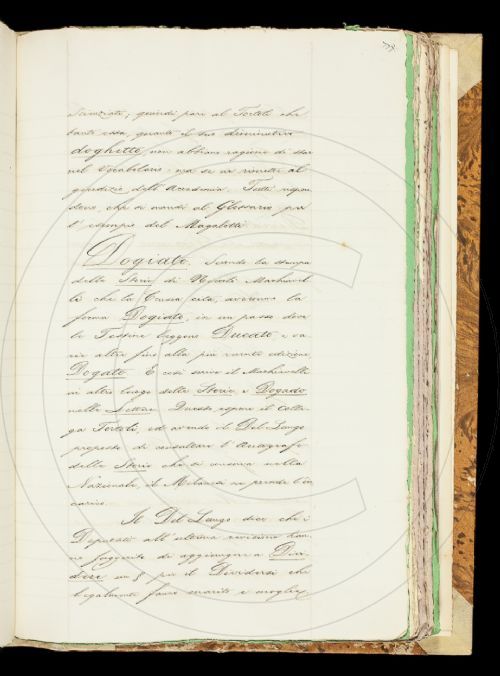 scienziato; quindi pare al Tortoli che
tanto essa, quanto il suo diminutivo
doghetta, non abbiano ragione di stare
nel Vocabolario: ma se ne rimette al
giudizio dell'Accademia. Tutti rispon
dono, che si mandi al Glossario per
l'esempio del Magalotti.
Dogiato. Secondo la stampa
delle Storie di Niccolò Machiavel
li che la Crusca cita, avremmo la
forma Dogiato, in un passo dove
la Testina legge Ducato, e va
rie altre fino alla più recente edizione,
Dogato. E così scrive il Machiavelli
in altro luogo delle Storie, e Dogado
nelle Lettere. Questo espone il Colle
ga Tortoli, ed avendo il Del Lungo
proposto di consultare l'Autografo
delle Storie che si conserva nella
Nazionale, il Milanesi ne prende l'in
carico.
Il Del Lungo dice che i
Deputati all'ultima revisione han
no suggerito di aggiungere a Divi
dere un § per il Dividersi che
legalmente fanno marito e moglie,